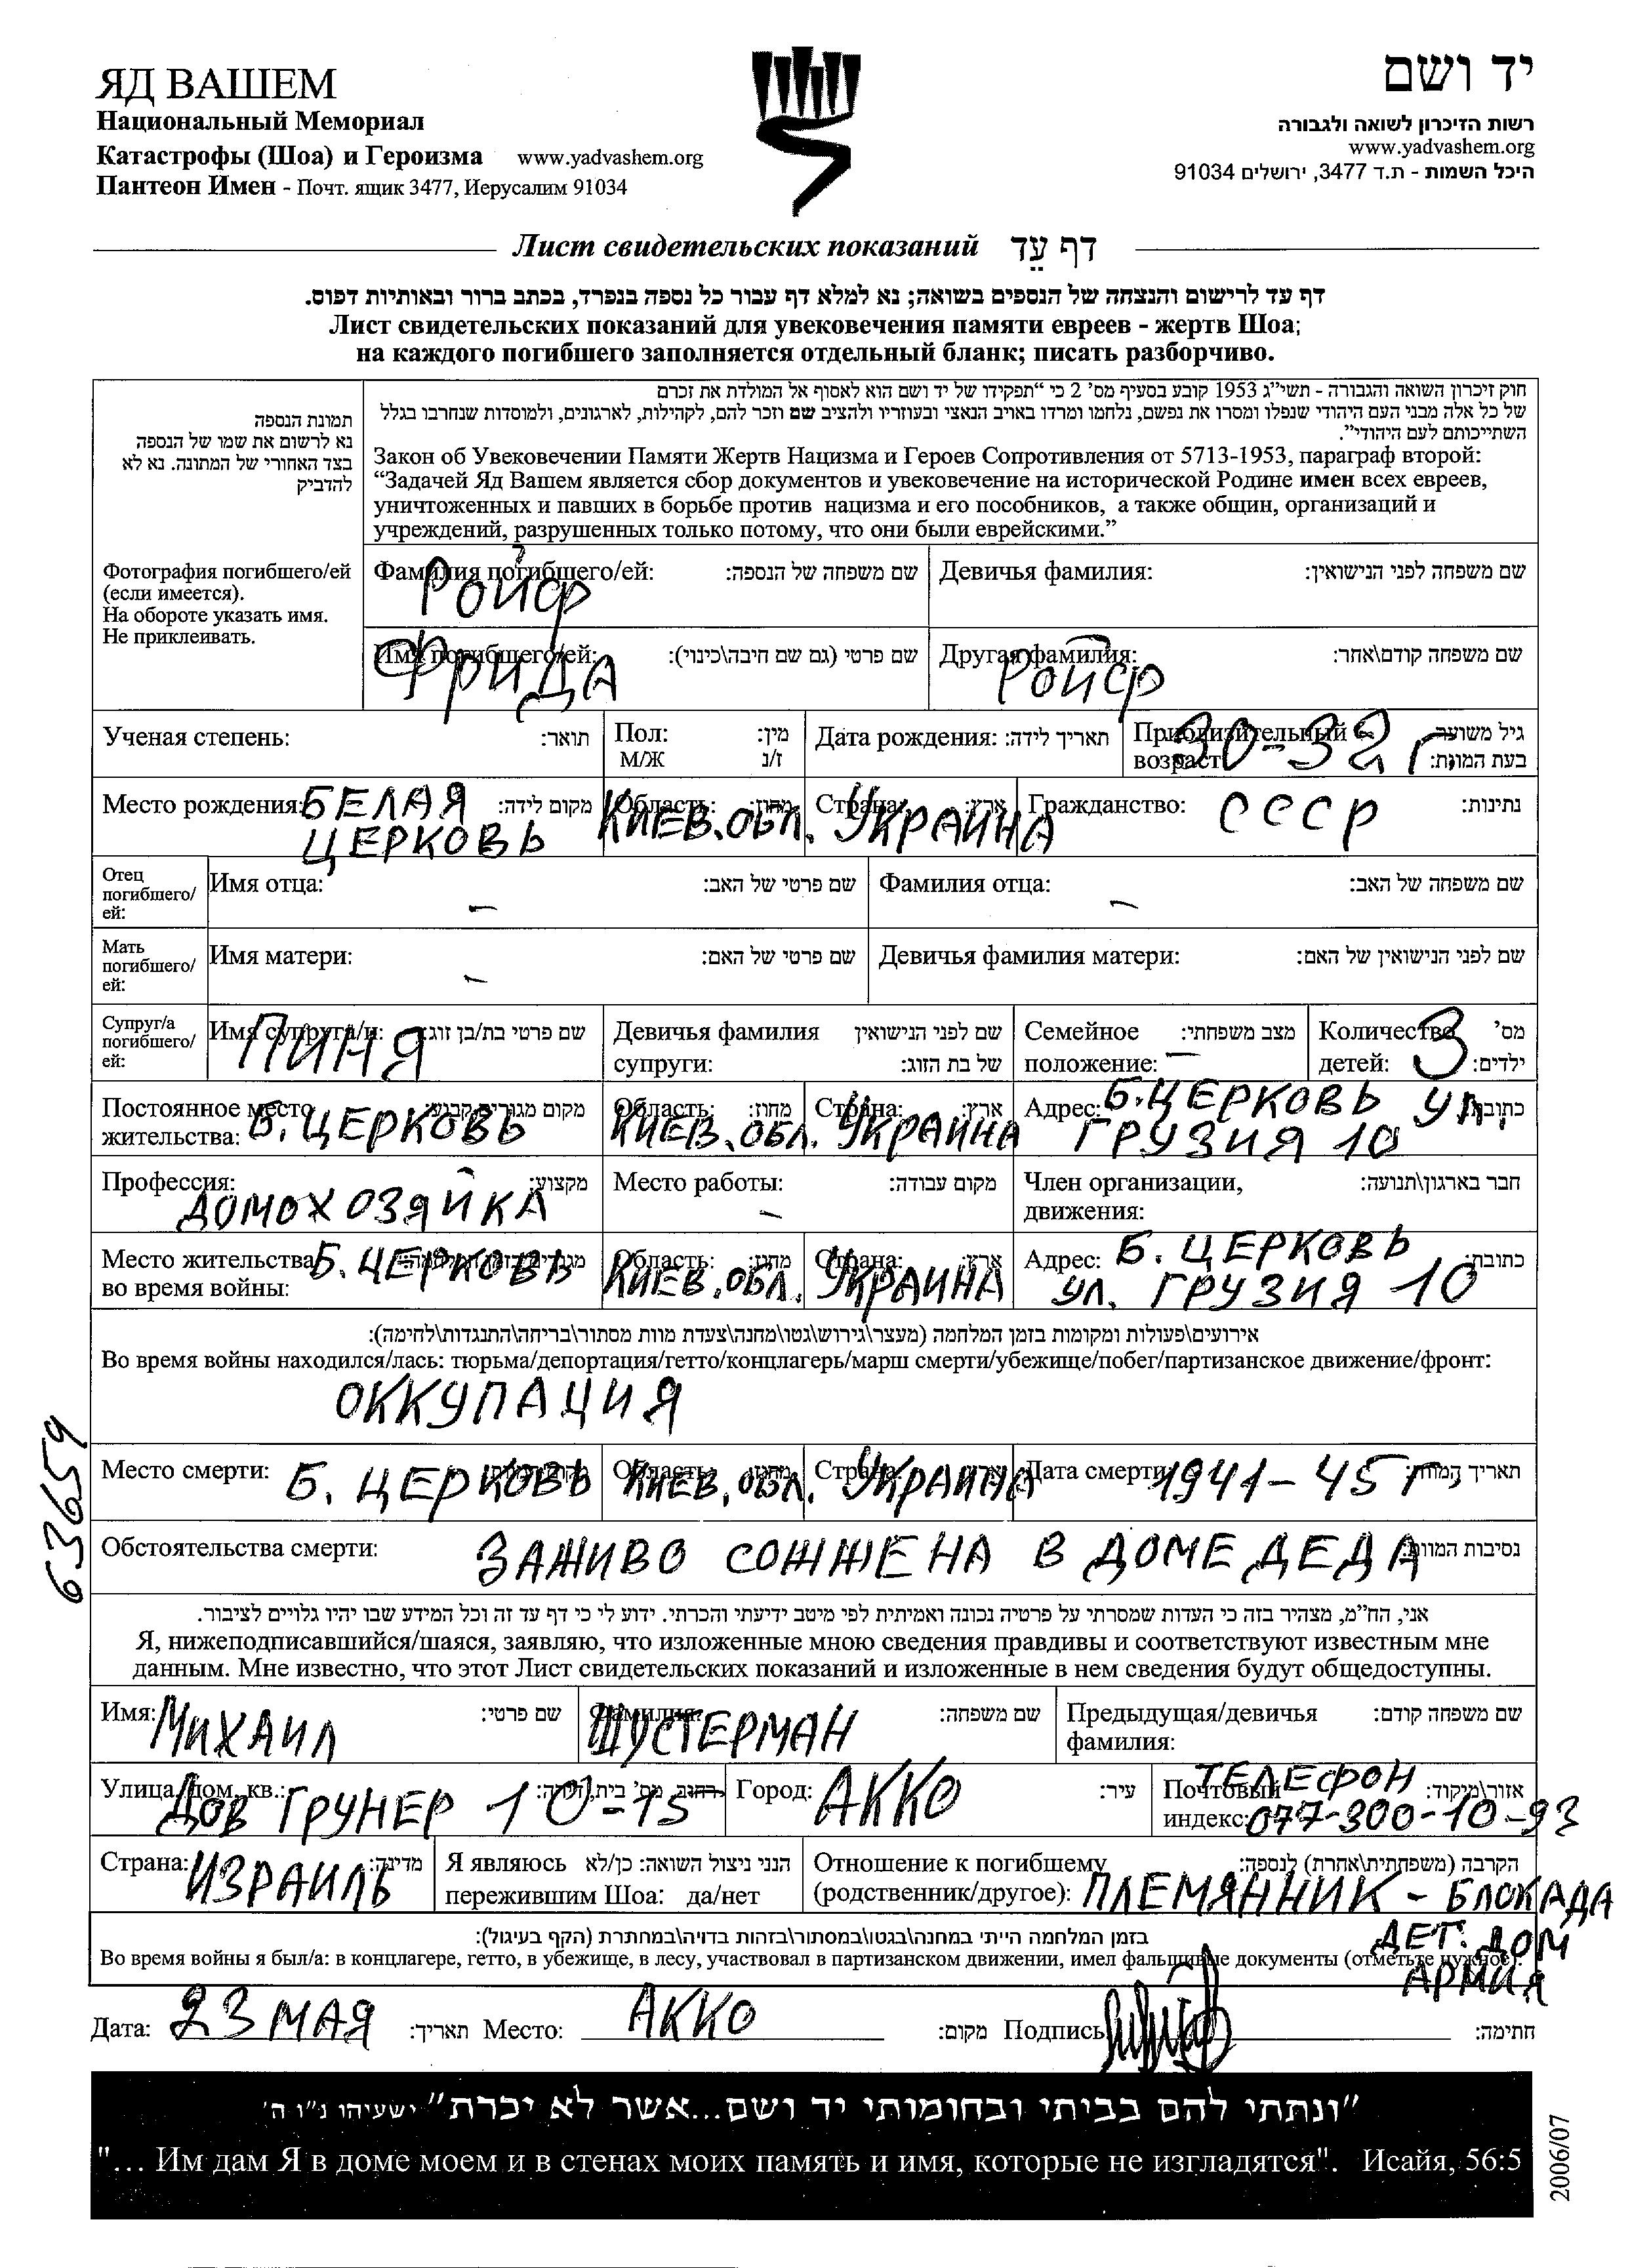 ЯД ВАШЕМ
Национальный Мемориал
Катастрофы (Шоа) и Героизма www.yadvashem.org
Пантеон Имен - Почт. ящик 3477, Иерусалим 91034
יד ושם
רשות הזיכרון לשואה ולגבורה
www.yadvashem.org
היכל השמות - ת.ד 3477, ירושלים 91034
Лист свидетельских показаний דף עֵד
דף עד לרישום והנצחה של הנספים בשואה; נא למלא דף עבור כל נספה בנפרד, בכתב ברור ובאותיות דפוס.
Лист свидетельских показаний для увековечения памяти евреев - жертв Шоа;
на каждого погибшего заполняется отдельный бланк; писать разборчиво.
תמונת הנספה
נא לרשום את שמו של הנספה
בצד האחורי של התמונה. נא לא
להדביק
Фотография погибшего/ей
(если имеется).
На обороте указать имя.
Не приклеивать.
חוק זיכרון השואה והגבורה - תשי"ג 1953 קובע בסעיף מס' 2 כי "תפקידו של יד ושם הוא לאסוף אל המולדת את זכרם
של כל אלה מבני העם היהודי שנפלו ומסרו את נפשם, נלחמו ומרדו באויב הנאצי ובעוזריו ולהציב שם וזכר להם, לקהילות, לארגונים, ולמוסדות שנחרבו בגלל
השתייכותם לעם היהודי".
Закон об Увековечении Памяти Жертв Нацизма и Героев Сопротивления от 5713-1953, параграф второй:
"Задачей Яд Вашем является сбор документов и увековечение на исторической Родине имен всех евреев,
уничтоженных и павших в борьбе против нацизма и его пособников, а также общин, организаций и
учреждений, разрушенных только потому, что они были еврейскими."
Фамилия погибшего/ей: שם משפחה של הנספה: Девичья фамилия: שם משפחה לפני הנישואין:
Ройф
Имя погибшего/ей: שם פרטי (גם שם חיבה\כינוי): Другая фамилия: שם משפחה קודם\אחר:
ФРИДА Ройф
Ученая степень: תואר: Пол: מין: Дата рождения: תאריך לידה: Приблизительный גיל משוער
М/Ж ז/נ возраст: בעת המוות:
30-32 г.
Место рождения: מקום לידה: Область: מחוז: Страна: ארץ: Гражданство: נתינות:
БЕЛАЯ ЦЕРКОВЬ КИЕВ.ОБЛ. УКРАИНА СССР
Отец
погибшего/
ей:
Имя отца: – שם פרטי של האב: Фамилия отца: – שם משפחה של האב:
Мать
погибшего/
ей:
Имя матери: – שם פרטי של האם: Девичья фамилия матери: שם לפני הנישואין של האם:
Супруг/а
погибшего/
ей:
Имя супруга/и: שם פרטי בת/בן זוג: Девичья фамилия שם לפני הנישואין Семейное מצב משפחתי: Количество מס'
супруги: של בת הזוג: положение: – детей: ילדים:
ПИНЯ 3
Постоянное место מקום מגורים קבוע: Область: מחוז: Страна: ארץ: Адрес: כתובת:
жительства: Б. ЦЕРКОВЬ КИЕВ.ОБЛ. УКРАИНА Б. ЦЕРКОВЬ УЛ.
ГРУЗИЯ 10
Профессия: מקצוע: Место работы: מקום עבודה: Член организации, חבר בארגון\תנועה:
движения:
ДОМОХОЗЯЙКА –
Место жительства Область: מחוז: Страна: ארץ: Адрес: כתובת:
во время войны: Б. ЦЕРКОВЬ КИЕВ.ОБЛ. УКРАИНА Б. ЦЕРКОВЬ
УЛ. ГРУЗИЯ 10
אירועים\פעולות ומקומות בזמן המלחמה (מעצר\גירוש\גטו\מחנה\צעדת מוות מסתור\בריחה\התנגדות\לחימה):
Во время войны находился/лась: тюрьма/депортация/гетто/концлагерь/марш смерти/убежище/побег/партизанское движение/фронт:
ОККУПАЦИЯ
Место смерти: מקום המוות: Область: מחוז: Страна: ארץ: Дата смерти: תאריך המוות:
Б. ЦЕРКОВЬ КИЕВ.ОБЛ. УКРАИНА 1941-45 г.
Обстоятельства смерти: נסיבות המוות:
ЗАЖИВО СОЖЖЕНА В ДОМЕ ДЕДА
63659
אני, הח"מ, מצהיר בזה כי העדות שמסרתי על פרטיה נכונה ואמיתית לפי מיטב ידיעתי והכרתי. ידוע לי כי דף עד זה וכל המידע שבו יהיו גלויים לציבור.
Я, нижеподписавшийся/шаяся, заявляю, что изложенные мною сведения правдивы и соответствуют известным мне
данным. Мне известно, что этот Лист свидетельских показаний и изложенные в нем сведения будут общедоступны.
Имя: שם פרטי: Фамилия: שם משפחה: Предыдущая/девичья שם משפחה קודם:
фамилия:
МИХАИЛ ШУСТЕРМАН
Улица, дом, кв.: רחוב, מס' בית, דירה: Город: עיר: Почтовый אזור\מיקוד:
индекс:
ДОВ ГРУНЕР 10-15 АККО ТЕЛЕФОН
077-300-10-93
Страна: מדינה: Я являюсь הנני ניצול השואה: כן/לא Отношение к погибшему הקרבה (משפחתית\אחרת) לנספה:
пережившим Шоа: да/нет (родственник/другое):
ИЗРАИЛЬ ПЛЕМЯННИК - БЛОКАДА
ДЕТ. ДОМ
АРМИЯ
בזמן המלחמה הייתי במחנה\בגטו\במסתור\בזהות בדויה\במחתרת (הקף בעיגול):
Во время войны я был/а: в концлагере, гетто, в убежище, в лесу, участвовал в партизанском движении, имел фальшивые документы (отметьте нужное):
Дата: 23 МАЯ תאריך: Место: АККО מקום: Подпись חתימה:
"ונתתי להם בביתי ובחומותי יד ושם...אשר לא יכרת" ישעיהו נ"ו ה'
"... Им дам Я в доме моем и в стенах моих память и имя, которые не изгладятся". Исайя, 56:5
2006/07